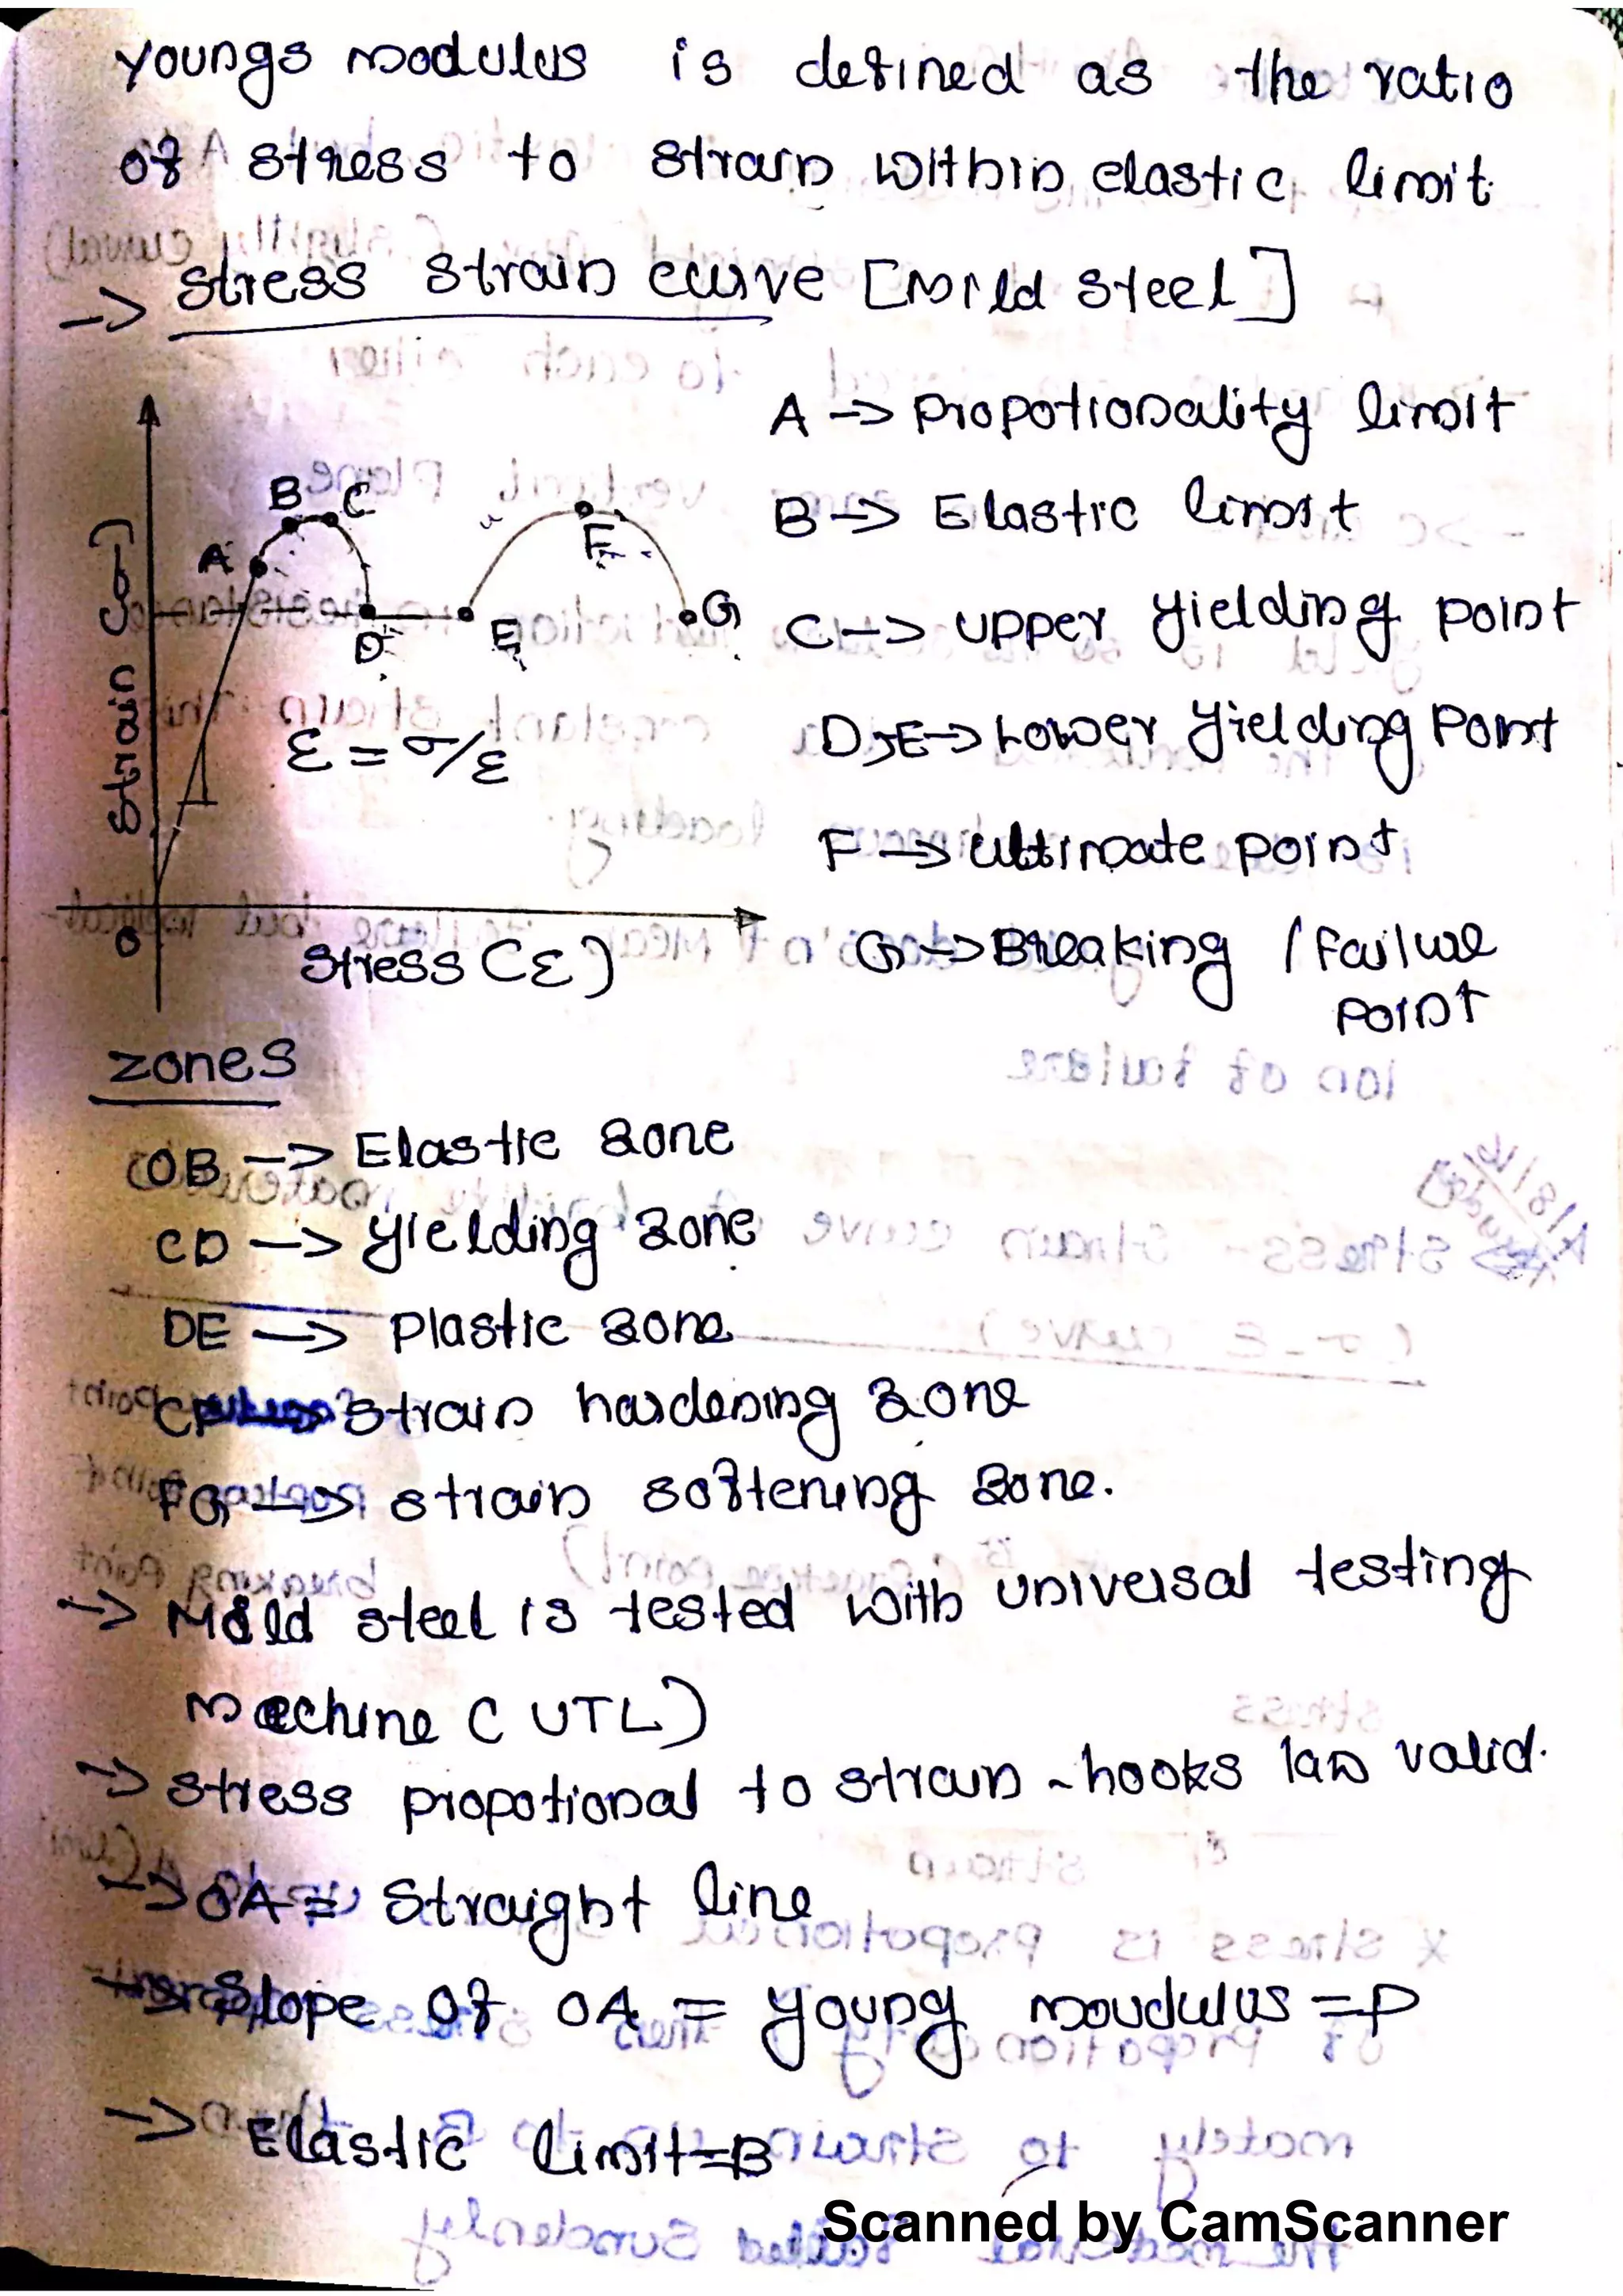 Youngs modulus is defined as the ratio
of stress to strain within elastic limit.
-> Stress strain curve [Mild steel]
A -> Propotionality limit
B -> Elastic limit
C -> upper yielding point
D,E -> Lower yielding Point
F -> ultimate point
G -> Breaking / Failure
Point
Strain (σ)
A
B
C
D
E
F
G
ε = σ/ε
O
Stress (ε)
Zones
OB -> Elastic zone
CD -> Yielding zone
DE -> Plastic zone
strain hardening zone
FG -> strain softening zone.
-> Mild steel is tested with universal testing
Machine (UTL)
-> Stress propotional to strain - hooks law valid.
-> OA = Straight line
-> Slope of OA = Young moudulus =
-> Elastic limit = B
Scanned by CamScanner